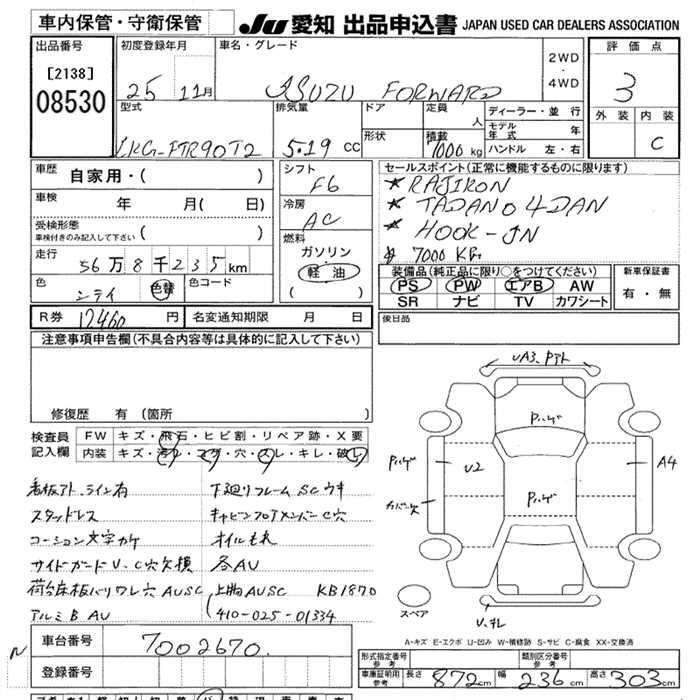 車内保管・守衛保管
JU 愛知 出品申込書 JAPAN USED CAR DEALERS ASSOCIATION
出品番号
[2138]
08530
初度登録年月
25 11月
車名・グレード
ISUZU FORWARD
2WD
・
4WD
評価点
3
外装 内装
C
型式
LKG-FTR90T2
排気量
5.19 cc
ドア
形状
定員
人
積載
7000 kg
ディーラー・並行
モデル年式 年
ハンドル 左・右
車歴
自家用・( )
車検
年 月( 日)
受検形態
車検付きのみ記入して下さい ( )
走行
56万8千235km
色
シロイ
色替
色コード
シフト
F6
冷房
AC
燃料
ガソリン
軽油
( )
セールスポイント(正常に機能するものに限ります)
★ RAJIKON
★ TADANO 4DAN
★ HOOK-IN
★ 7000 KG
装備品(純正品に限り○をつけてください)
PS PW エアB AW
SR ナビ TV カワシート
新車保証書
有・無
R券 12460 円
名変通知期限 月 日
後日品
注意事項申告欄(不具合内容等は具体的に記入して下さい)
修復歴 有(箇所 )
検査員記入欄
FW キズ・飛石・ヒビ割・リペア跡・X要
内装 キズ・汚レ・コゲ・穴・スレ・キレ・破レ
看板アト、ライン有
スタッドレス
コーション文字カケ
サイドガードV、C穴欠損
荷台床板バリワレ穴AUSC
アルミB AU
下廻りフレームSCウキ
キャビンフロアメンバーC穴
オイルもれ
各AU
上物AUSC KB1870
410-025-01334
UA3、Pアト
Pハゲ
Pハゲ
U2
カバー欠
Pハゲ
A4
U、キレ
スペア
A-キズ E-エクボ U-凹み W-補修跡 S-サビ C-腐食 XX-交換済
N
車台番号
7002670
登録番号
形式指定番号
参考
類別区分番号
参考
車庫証明用
参考
長さ 872cm
幅 236cm
高さ 303cm